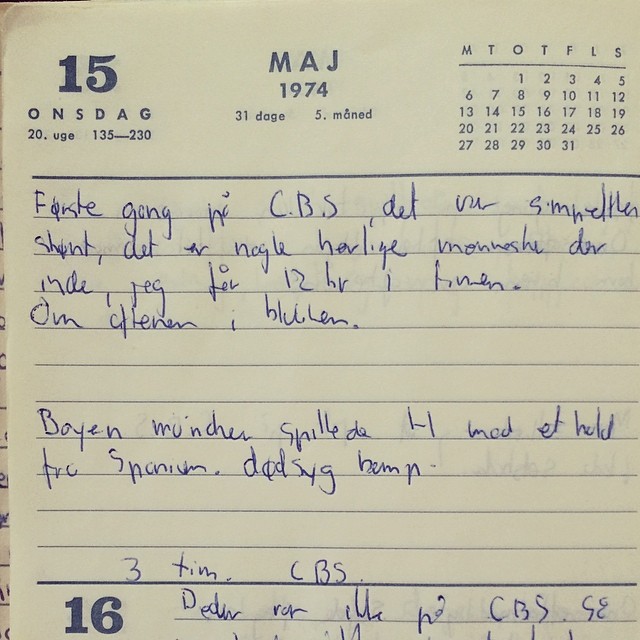 15
ONSDAG
20. uge 135—230
MAJ
1974
31 dage 5. måned
M T O T F L S
1 2 3 4 5
6 7 8 9 10 11 12
13 14 15 16 17 18 19
20 21 22 23 24 25 26
27 28 29 30 31
Første gang på C.B.S, det var simpelthen
skønt, det er nogle herlige mennesker der
inde, jeg får 12 kr i timen.
Om aftenen i
Bayen münchen spillede 1-1 mod et hold
fra Spanien. dødsyg kamp.
3 tim. CBS.
16
var ikke på CBS. så